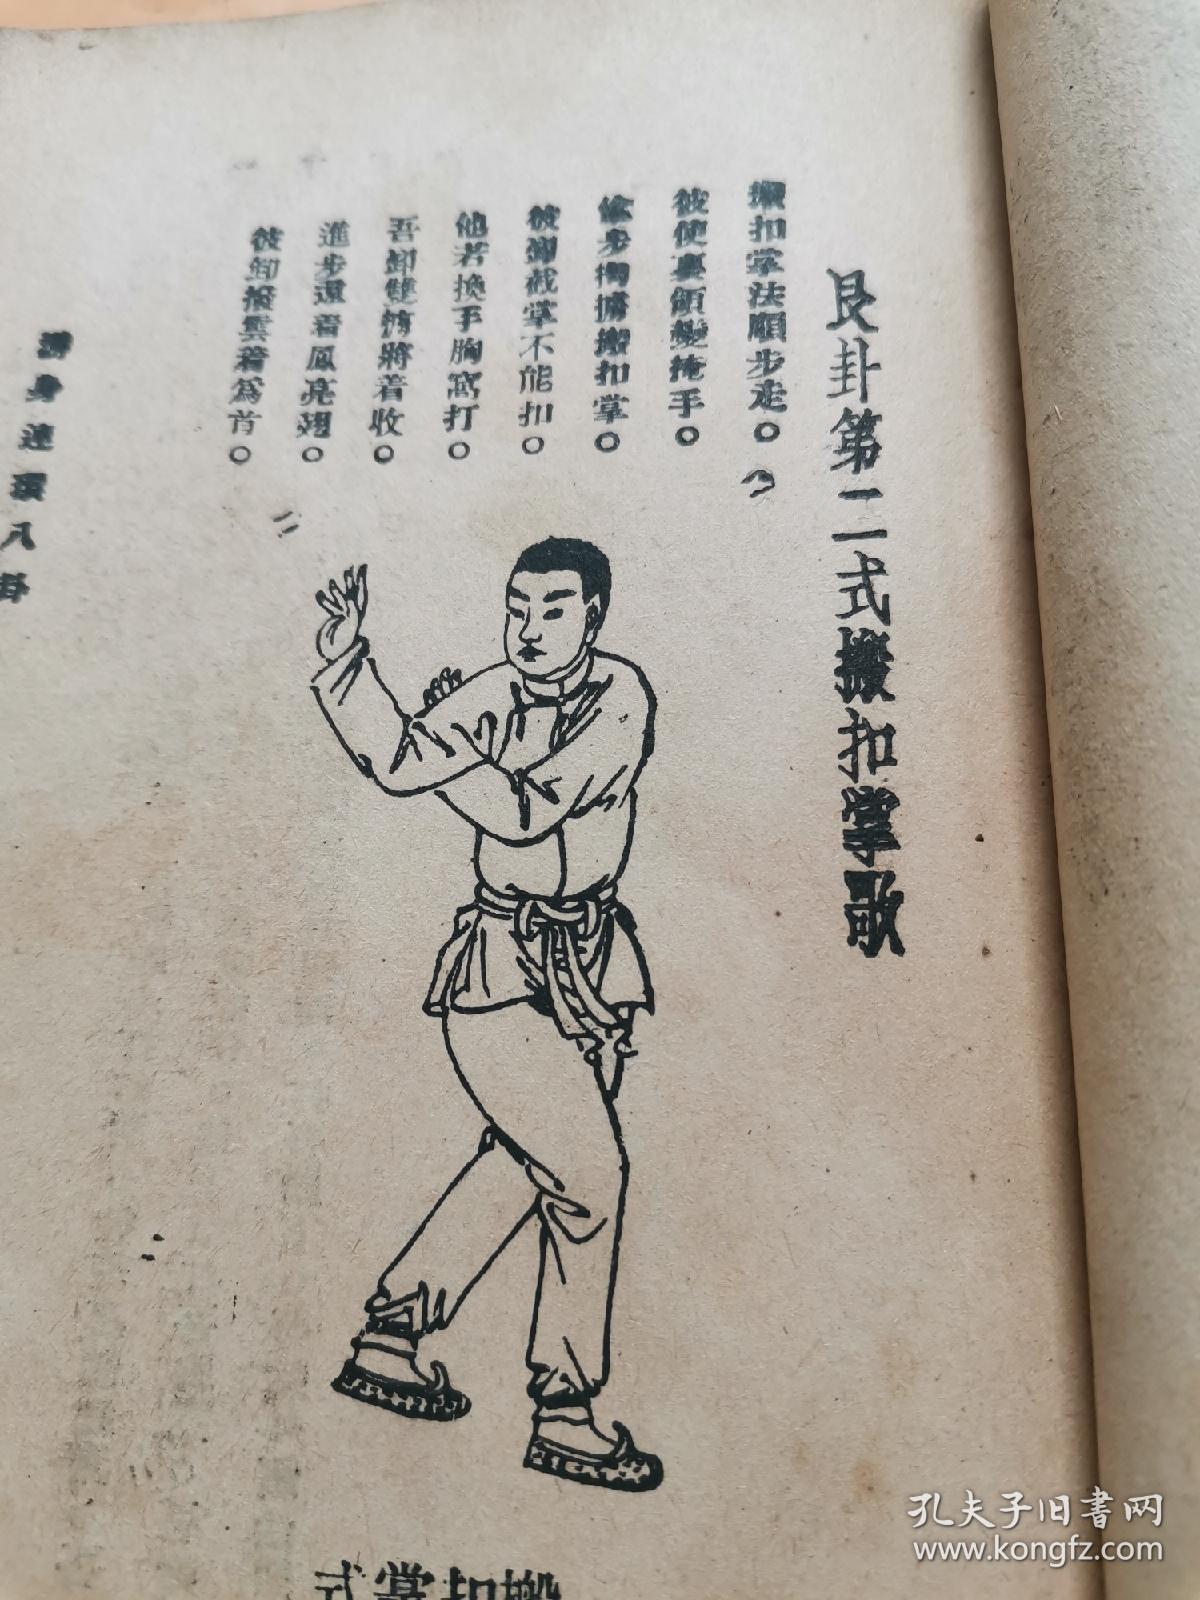 艮卦第二式搬扣掌歌
搬扣掌法順步走○
彼使裏領變掩手○
偷步搬扣掌○
彼卸截掌不能扣○
他若換手胸窩打○
吾卸雙將着收○
進步還着鳳亮翅○
彼卸撥雲着爲首○
游身連環八卦
搬扣掌式
孔夫子旧書网
www.kongfz.com